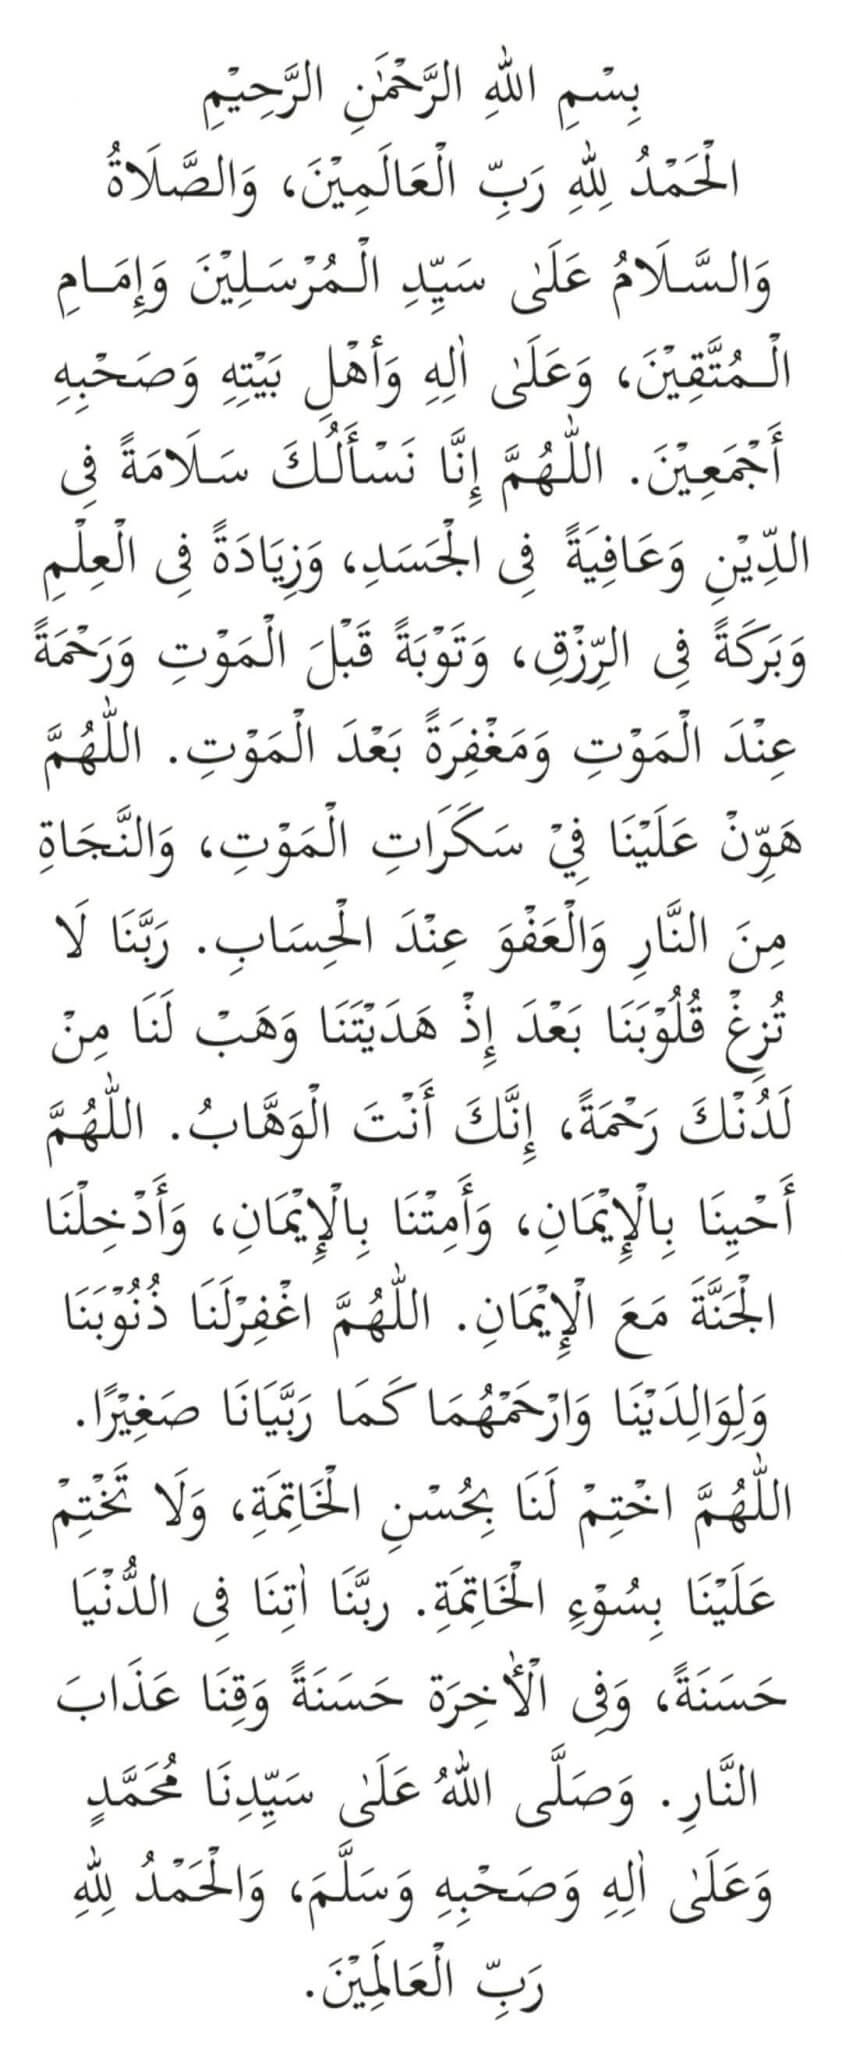 بِسْمِ اللهِ الرَّحْمٰنِ الرَّحِيْمِ
الْحَمْدُ لِلهِ رَبِّ الْعَالَمِيْنَ، وَالصَّلَاةُ
وَالسَّلَامُ عَلَىٰ سَيِّدِ الْمُرْسَلِيْنَ وَإِمَامِ
الْمُتَّقِيْنَ، وَعَلَىٰ اٰلِهِ وَأهْلِ بَيْتِهِ وَصَحْبِهِ
أَجْمَعِيْنَ. اللّٰهُمَّ إِنَّا نَسْأَلُكَ سَلَامَةً فِى
الدِّيْنِ وَعَافِيَةً فِى الْجَسَدِ، وَزِيَادَةً فِى الْعِلْمِ
وَبَرَكَةً فِى الرِّزْقِ، وَتَوْبَةً قَبْلَ الْمَوْتِ وَرَحْمَةً
عِنْدَ الْمَوْتِ وَمَغْفِرَةً بَعْدَ الْمَوْتِ. اللّٰهُمَّ
هَوِّنْ عَلَيْنَا فِيْ سَكَرَاتِ الْمَوْتِ، وَالنَّجَاةِ
مِنَ النَّارِ وَالْعَفْوَ عِنْدَ الْحِسَابِ. رَبَّنَا لَا
تُزِغْ قُلُوْبَنَا بَعْدَ إِذْ هَدَيْتَنَا وَهَبْ لَنَا مِنْ
لَدُنْكَ رَحْمَةً، إِنَّكَ أَنْتَ الْوَهَّابُ. اللّٰهُمَّ
أَحْيِنَا بِالْإِيْمَانِ، وَأَمِتْنَا بِالْإِيْمَانِ، وَأَدْخِلْنَا
الْجَنَّةَ مَعَ الْإِيْمَانِ. اللّٰهُمَّ اغْفِرْلَنَا ذُنُوْبَنَا
وَلِوَالِدَيْنَا وَارْحَمْهُمَا كَمَا رَبَّيَانَا صَغِيْرًا.
اللّٰهُمَّ اخْتِمْ لَنَا بِحُسْنِ الْخَاتِمَةِ، وَلَا تَخْتِمْ
عَلَيْنَا بِسُوْءِ الْخَاتِمَةِ. ربَّنَا اٰتِنَا فِى الدُّنْيَا
حَسَنَةً، وَفِى الْأٰخِرَة حَسَنَةً وَقِنَا عَذَابَ
النَّارِ. وَصَلَّى اللهُ عَلَىٰ سَيِّدِنَا مُحَمَّدٍ
وَعَلَىٰ اٰلِهِ وَصَحْبِهِ وَسَلَّمَ، وَالْحَمْدُ لِلهِ
رَبِّ الْعَالَمِيْنَ.